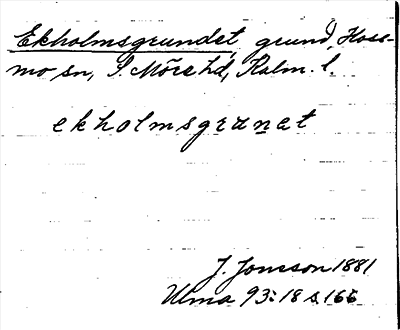 Ekholmsgrundet, grund, Hoss-
mo sn, S. Möre hd, Kalm. l.
ekholmsgrunet
J. Jonsson 1881
Ulma 93:18 s. 166